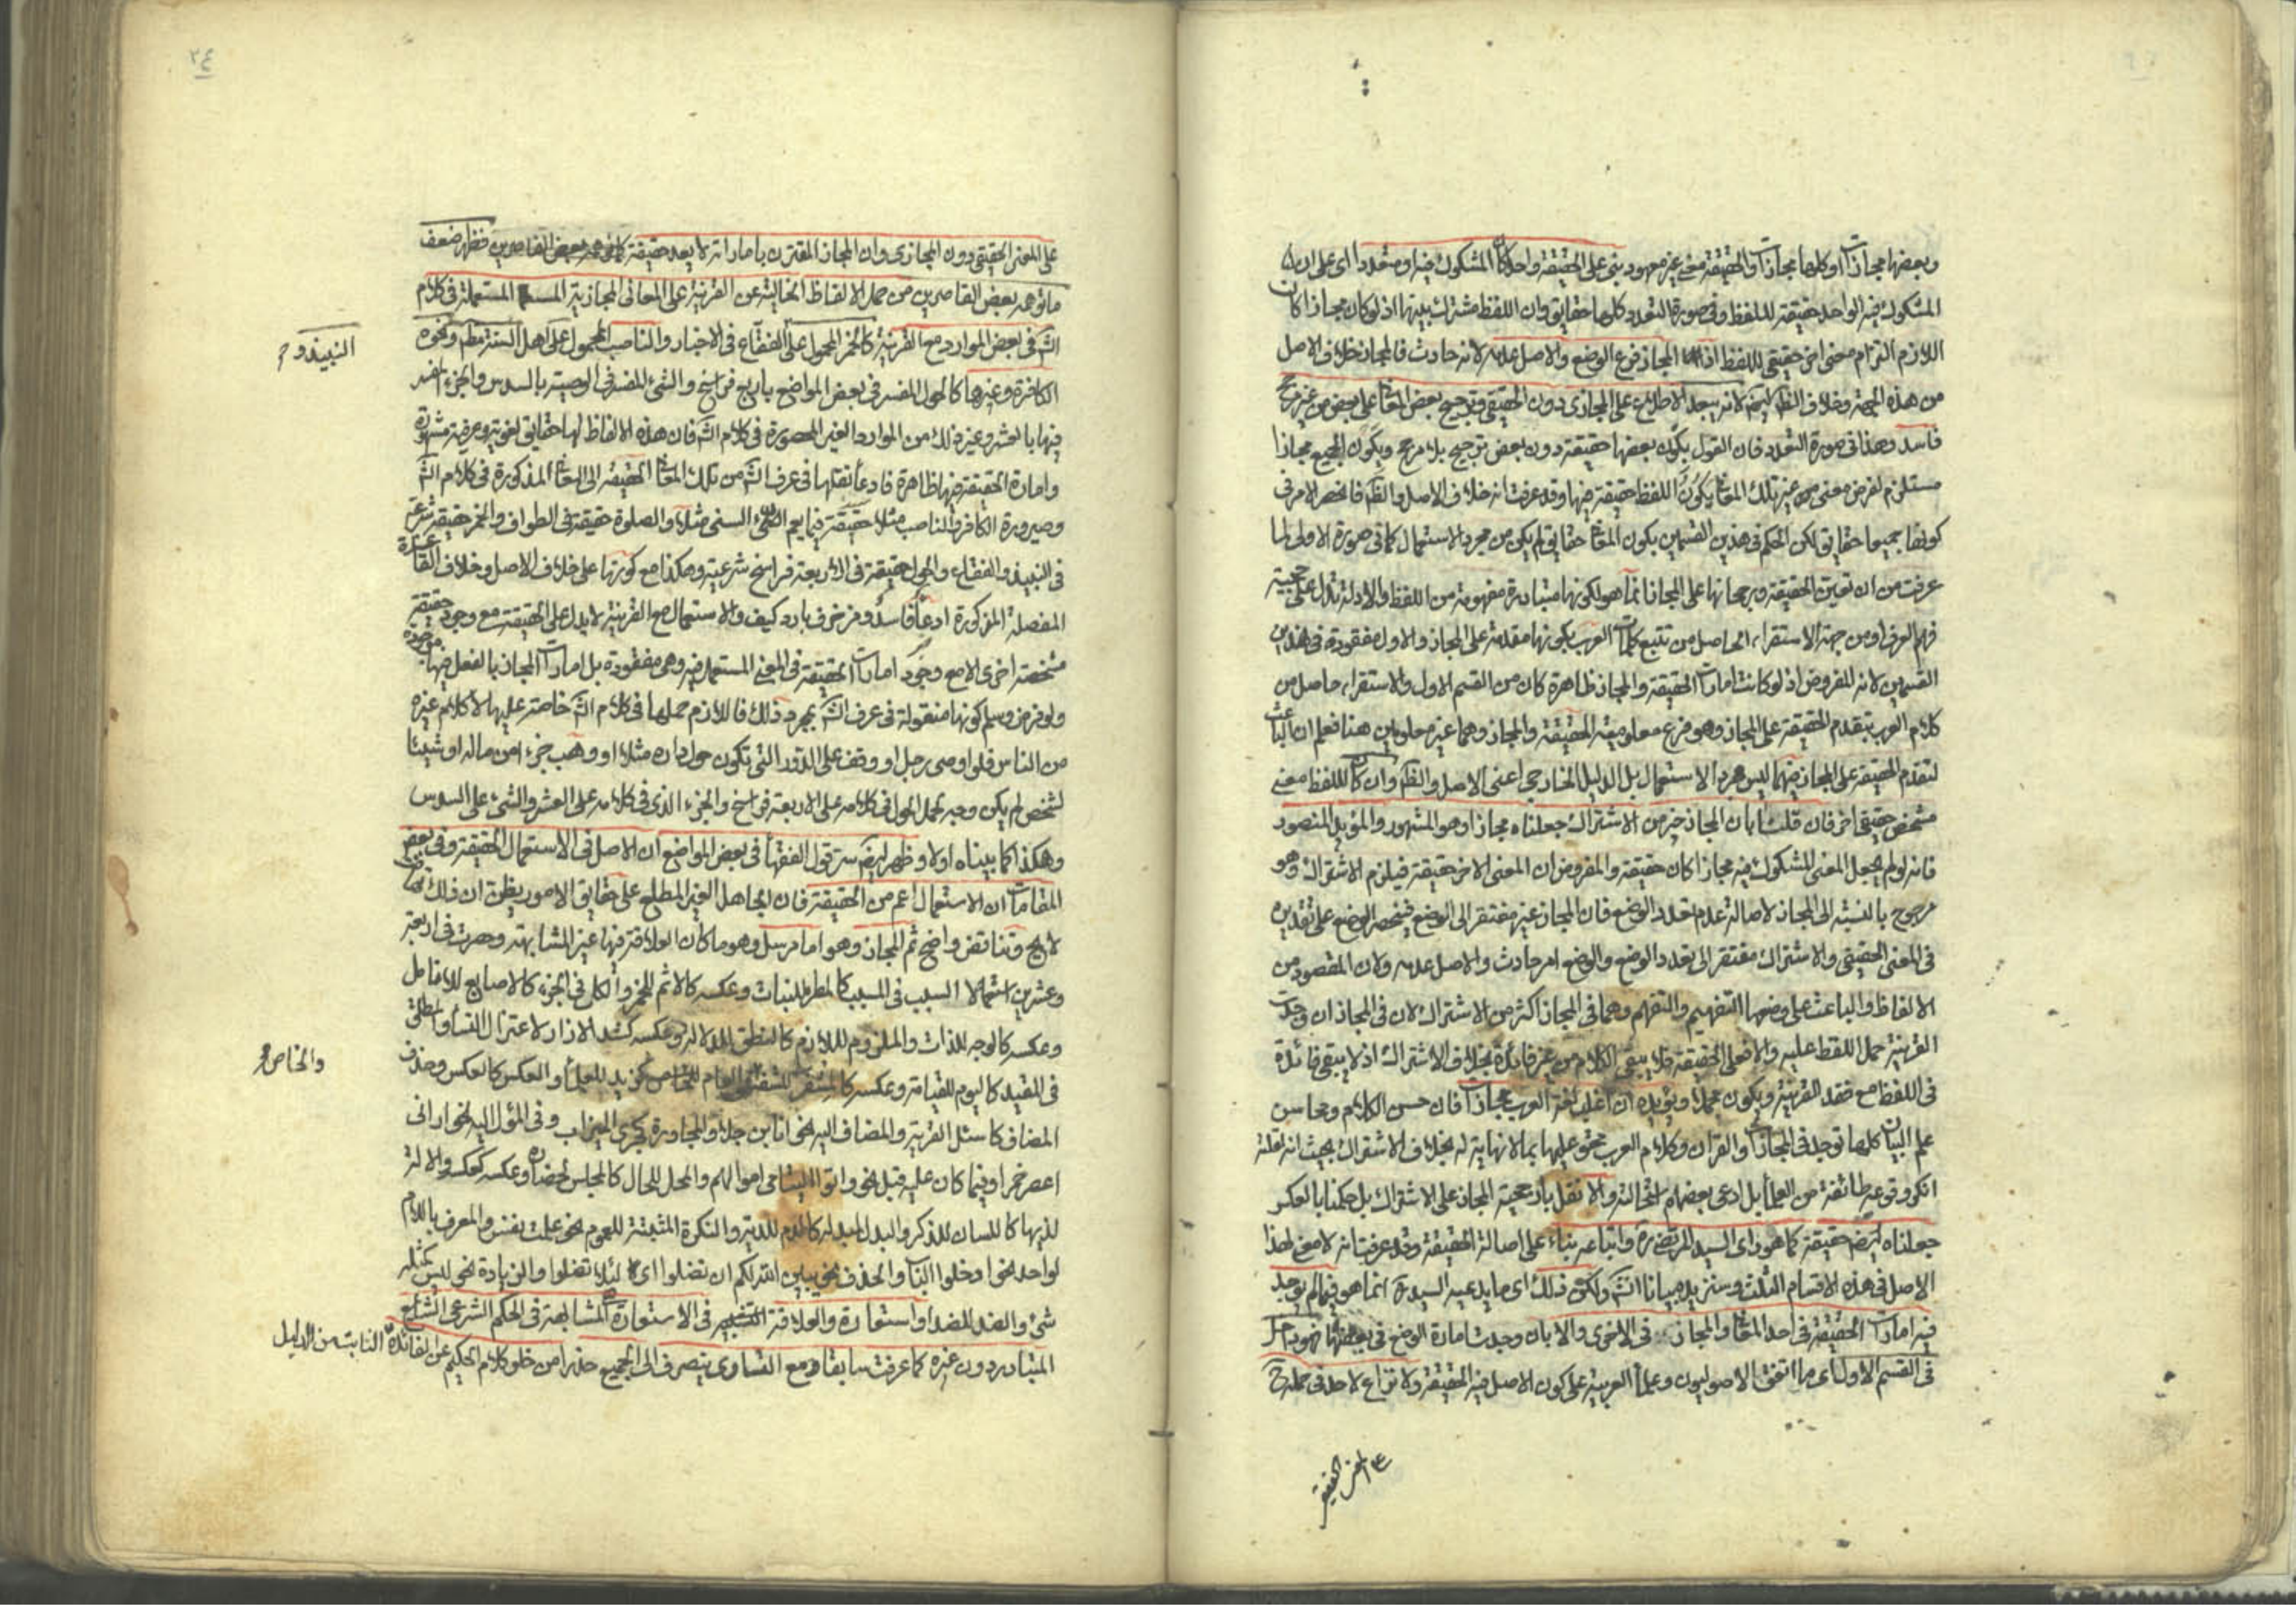 وبعضها مجازات او كلها مجازات والحقيقة معنى غير معهود بنى على الحقيقة واحدا كان المشكوك فيه او متعددا اى على ان
المشكوك فيه الواحد حقيقة للفظ وفى صورة التعدد كلها حقايق وان اللفظ مشترك بينها اذ لو كان مجازا كان
اللازم التزام معنى اخر حقيقى للفظ اذ المجاز فرع الوضع والاصل عدمه لانه حادث فالمجاز خلاف الاصل
من هذه الجهة وخلاف الظ ايضا لانه يبعد الاطلاع على المجازى دون الحقيقى وترجيح بعض المعانى على بعض من غير مرجح
فاسد وهذا فى صورة التعدد فان القول بكون بعضها حقيقة دون بعض ترجيح بلا مرجح وبكون الجميع مجازا
مستلزم لفرض معنى من غير تلك المعانى يكون اللفظ حقيقة فيها وقد عرفت انه خلاف الاصل والظ فانحصر الامر فى
كونها جميعا حقايق لكن الحكم فى هذين القسمين بكون المعانى حقايق لم يكن من مجرد الاستعمال كما فى صورة الاولى لما
عرفت من ان تعين الحقيقة ورجحانها على المجاز انما هو لكونها متبادرة مفهومة من اللفظ والادلة تدل على حجية
فهم العرف او من جهة الاستقراء الحاصل من تتبع كلمات العرب بكونها مقدمة على المجاز والاول مفقودة فى هذين
القسمين لانه المفروض اذ لو كانت امارات الحقيقة والمجاز ظاهرة كان من القسم الاول والاستقراء حاصل من
كلام العرب بتقدم الحقيقة على المجاز وهو فرع معلومية الحقيقة والمجاز وهما غير معلومين هنا فعلم ان الباعث
لتقدم الحقيقة على المجاز فيهما ليس مجرد الاستعمال بل الدليل الخارجى اعنى الاصل والظ وان كان للفظ معنى
مشخص حقيقى اخر فان قلنا بان المجاز خير من الاشتراك جعلناه مجازا وهو المشهور والمؤيد المنصور
فانه لو لم يجعل المعنى المشكوك فيه مجازا كان حقيقة والمفروض ان المعنى الاخر حقيقة فيلزم الاشتراك وهو
مرجوح بالنسبة الى المجاز لاصالة عدم تعدد الوضع فان المجاز غير مفتقر الى الوضع فينحصر الوضع على تقديره
فى المعنى الحقيقى والاشتراك مفتقر الى تعدد الوضع والوضع امر حادث والاصل عدمه ولان المقصود من
الالفاظ والباعث على وضعها التفهيم والتفهم وهما فى المجاز اكثر من الاشتراك لان فى المجاز ان وجدت
القرينة حمل اللفظ عليه والا فعلى الحقيقة فلا يبقى الكلام من غير فائدة بخلاف الاشتراك اذ لا يبقى فائدة
فى اللفظ مع فقد القرينة ويكون مجملا ويؤيده ان اغلب لغة العرب مجازات فان حسن الكلام ومحاسن
علم البيان كلها توجد فى المجازات والقران وكلام العرب محتو عليها بما لا نهاية له بخلاف الاشتراك بحيث انه لقلته
انكر وقوعه طائفة من العلماء بل ادعى بعضهم استحالته والا نقل بارجحية المجاز على الاشتراك بل حكمنا بالعكس
جعلناه ايضا حقيقة كما هو راى السيد المرتضى ره واتباعه بناء على اصالة الحقيقة وقد عرفت انه لا معنى لهذا
الاصل فى هذه الاقسام الثلث وسنزيد بيانا انشاء ولكن ذلك اى ما يدعيه السيد ره انما هو فيما لم يوجد
فيه امارات الحقيقة فى احد المعانى والمجاز فى الاخرى والا بان وجدت امارة الوضع فى بعضها فهو داخل
فى القسم الاول اى ما اتفق الاصوليون وعلماء العربية على كون الاصل فيه الحقيقة ولا نزاع لاحد فى حمله ح
٣٤
على المعنى الحقيقى دون المجازى وان المجاز المقترن باماراته لا يعد حقيقة كما توهمه بعض القاصرين فظهر ضعف
ما توهمه بعض القاصرين من حمل الالفاظ الخالية عن القرينة على المعانى المجازية المستعملة فى كلام
الش فى بعض الموارد مع القرينة كالخمر المحمول على الفقاع فى الاخبار والناصب المحمول على اهل السنة مطم ونحوه
النبيذ و
الكافرة وغيرها كالحول المفسر فى بعض المواضع باربع فراسخ والشئ المفسر فى الوصية بالسدس والجزء المفسر
فيها بالعشر وغير ذلك من الموارد الغير المحصورة فى كلام الش فان هذه الالفاظ لها حقايق لغوية وعرفية مشهورة
وامارة الحقيقة فيها ظاهرة فادعاء نقلها فى عرف الش من تلك المعانى الحقيقة الى المعانى المذكورة فى كلام الش
وصيرورة الكافر والناصب مثلا حقيقة فيما يعم السنى مثلا والصلوة حقيقة فى الطواف والخمر حقيقة شرعية
فى النبيذ والفقاع والحول حقيقة فى الاربعة فراسخ شرعية وهكذا مع كونها على خلاف الاصل وخلاف القاعدة
المفصلة المذكورة ادعاء فاسد ومزخرف بارد كيف والاستعمال مع القرينة لا يدل على الحقيقة مع وجود حقيقة
مشخصة اخرى الا مع وجود امارات الحقيقة فى المعنى المستعمل فيه وهى مفقودة بل امارات المجاز بالفعل فيها موجودة
ولو فرض وسلم كونها منقولة فى عرف الش بمجرد ذلك فاللازم حملها فى كلام الش خاصة عليها لا كلام غيره
من الناس فلو اوصى رجل او وقف على الدور التى تكون حول داره مثلا او وهب جزءا من ماله او شيئا
لشخص لم يكن وجه لحمل الحول فى كلامه على الاربعة فراسخ والجزء الذى فى كلامه على العشر والشئ على السدس
وهكذا كما بيناه اولا وظهر ايضا سر قول الفقهاء فى بعض المواضع ان الاصل فى الاستعمال الحقيقة وفى بعض
المقامات ان الاستعمال اعم من الحقيقة فان الجاهل الغير المطلع على حقايق الامور يظن ان ذلك
وتناقض واضح ثم المجاز وهو اما مرسل وهو ما كان العلاقة فيها غير المشابهة وحصرت فى اربعة
وعشرين السبب فى المسبب كالمطر للنبات وعكسه كالاثم للخمر والكل فى الجزء كالاصابع للانامل
وعكسه كالوجه للذات والملزوم للازم كالنطق للدلالة وعكسه كشد الازار لاعتزال النساء والمطلق
فى المقيد كاليوم للقيامة وعكسه كالمشفر للشفة والعام للخاص كزيد للعلماء والعكس كالعكس وحذف
والخاص
المضاف كاسئل القرية والمضاف اليه نحو انا ابن جلا والمجاورة كجرى الميزاب وفى المؤل اليه نحو ارانى
اعصر خمرا وفيما كان عليه قبل نحو واتوا اليتامى اموالهم والمحل للحال كالمجلس لحضاره وعكسه كعكسه والالة
لذيها كاللسان للذكر والبدل لمبدله كالدم للدية والنكرة المثبتة للعموم نحو علمت نفس والمعرف باللام
لواحد نحو ادخلوا الباب والحذف نحو يبين الله لكم ان تضلوا اى لئلا تضلوا والزيادة نحو ليس كمثله
شئ والضد للضد او استعارة والعلاقة فى الاستعارة المشابهة فى الحكم الشرعى الشايع
المتبادر دون غيره كما عرفت سابقا ومع التساوى ينصرف الى الجميع حذرا من خلو كلام الحكيم عن الفائدة الثابت من الدليل